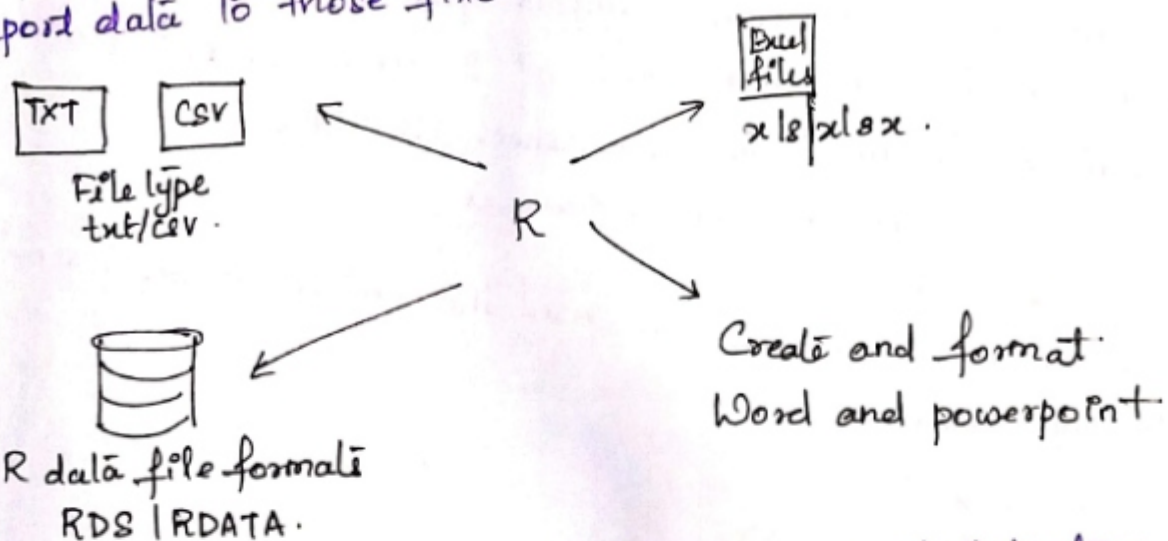 port data to those
TXT
CSV
File type
txt/csv.
Excel
files
xls|xlsx.
R
Create and format
Word and powerpoint
R data file formats
RDS | RDATA.